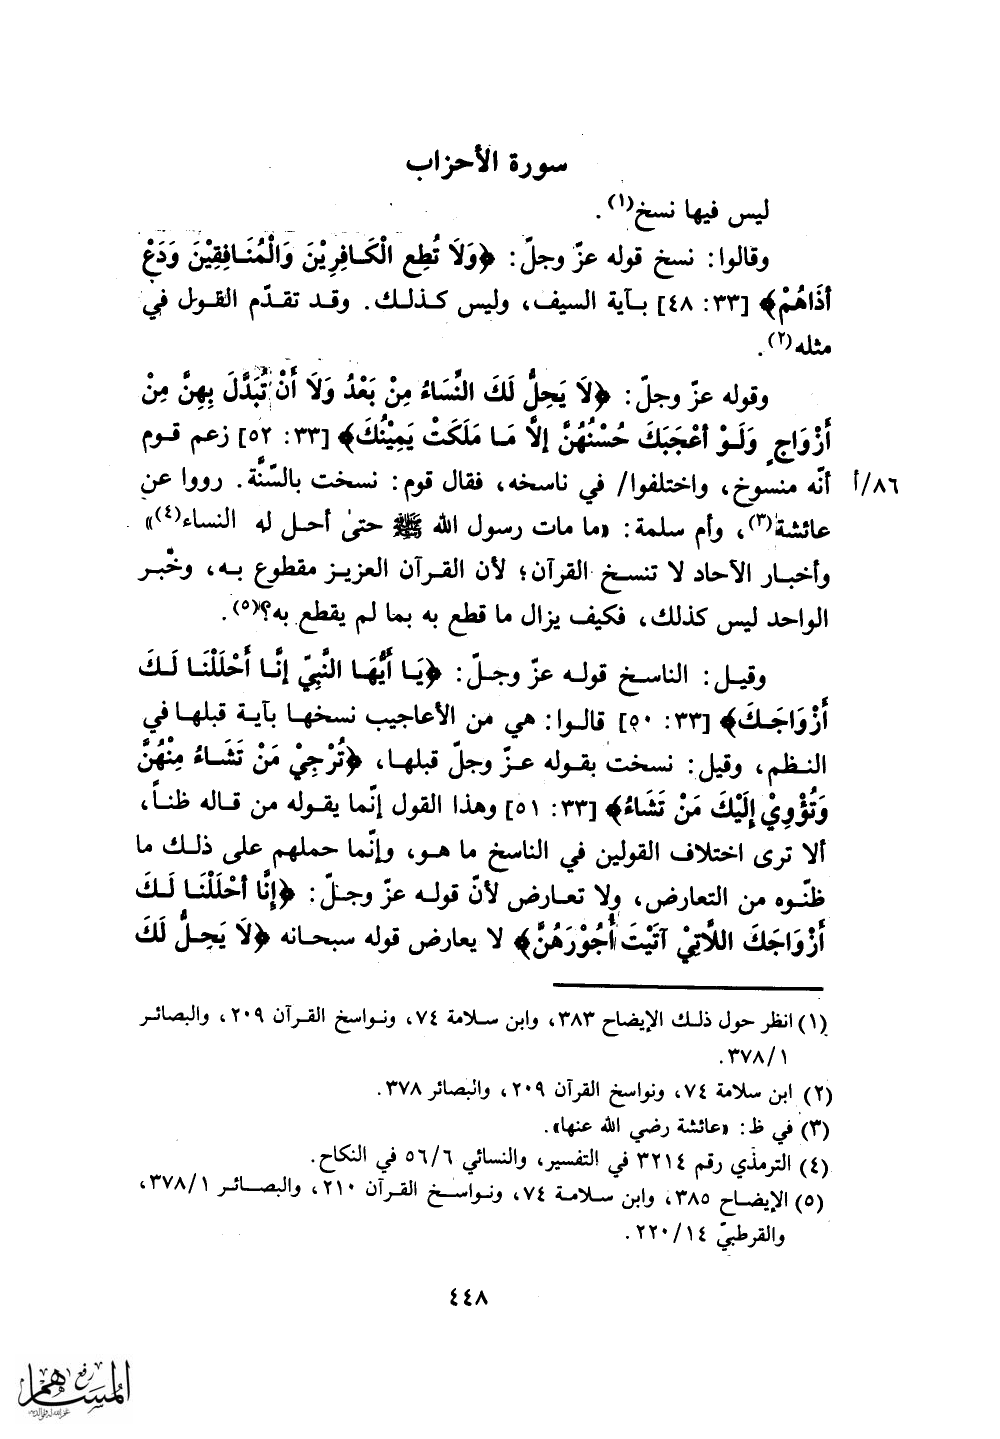 سورة الأحزاب
ليس فيها نسخ(١).
وقالوا: نسخ قوله عزّ وجلّ: ﴿وَلَا تُطِعِ الْكَـافِرِيْنَ وَالْمُنَـافِقِيْنَ وَدَعْ
أذَاهُمْ﴾ [٣٣: ٤٨] بـآية السيف، وليس كـذلـك. وقـد تقـدّم القـول في
مثله(٢).
وقوله عزّ وجلّ: ﴿لَا يَحِلُّ لَكَ النِّسَاءُ مِنْ بَعْدُ وَلَا أَنْ تُبَدَّلَ بِهِنَّ مِنْ
أَزْوَاجٍ وَلَـوْ أعْجَبَكَ حُسْنُهُنَّ إلَّا مَـا مَلَكَتْ يَمِيْنُكَ﴾ [٣٣: ٥٢] زعم قـوم
٨٦/أ أنّه منسوخ، واختلفوا/ في ناسخه، فقال قوم: نسخت بالسّنّة. رووا عن
عائشة(٣)، وأم سلمة: «ما مات رسول الله ﷺ حتىٰ أحـل له النساء(٤)»
وأخبـار الآحاد لا تنسـخ القرآن؛ لأن القـرآن العزيـز مقطوع بـه، وخْبـر
الواحد ليس كذلك، فكيف يزال ما قطع به بما لم يقطع به؟(٥).
وقيـل: الناسـخ قولـه عزّ وجـلّ: ﴿يَـا أَيُّهَـا النَّبِيّ إنَّـا أَحْلَلْنَـا لَـكَ
أَزْوَاجَـكَ﴾ [٣٣: ٥٠] قالـوا: هي من الأعاجيب نسخهـا بآيـة قبلهـا في
النـظم، وقيل: نسخت بقـوله عـزّ وجلّ قبلهـا، ﴿تُرْجِيْ مَنْ تَشَـاءُ مِنْهُنَّ
وَتُؤْوِيْ إلَيْكَ مَنْ تَشَاءُ﴾ [٣٣: ٥١] وهذا القول إنّما يقولـه من قـاله ظنـاً،
ألا ترى اختلاف القولين في الناسخ ما هـو، وإنّمـا حملهم على ذلـك ما
ظنّـوه من التعارض، ولا تعـارض لأنّ قولـه عزّ وجـلّ: ﴿إنَّا أحْلَلْنَـا لَـكَ
أَزْوَاجَكَ اللَّاتِيْ آتَيْتَ أُجُوْرَهُنَّ﴾ لا يعارض قوله سبحانه ﴿لَا يَحِلُّ لَكَ
(١) انظر حول ذلـك الإيضاح ٣٨٣، وابن سـلامة ٧٤، ونـواسخ القـرآن ٢٠٩، والبصائـر
٣٧٨/١.
(٢) ابن سلامة ٧٤، ونواسخ القرآن ٢٠٩، والبصائر ٣٧٨.
(٣) في ظ: «عائشة رضي الله عنها».
(٤) الترمذي رقم ٣٢١٤ في التفسير، والنسائي ٥٦/٦ في النكاح.
(٥) الإيضـاح ٣٨٥، وابن سـلامـة ٧٤، ونـواسـخ القرآن ٢١٠، والبصـائـر ٣٧٨/١،
والقرطبيّ ٢٢٠/١٤.
٤٤٨
رفع
المساهم